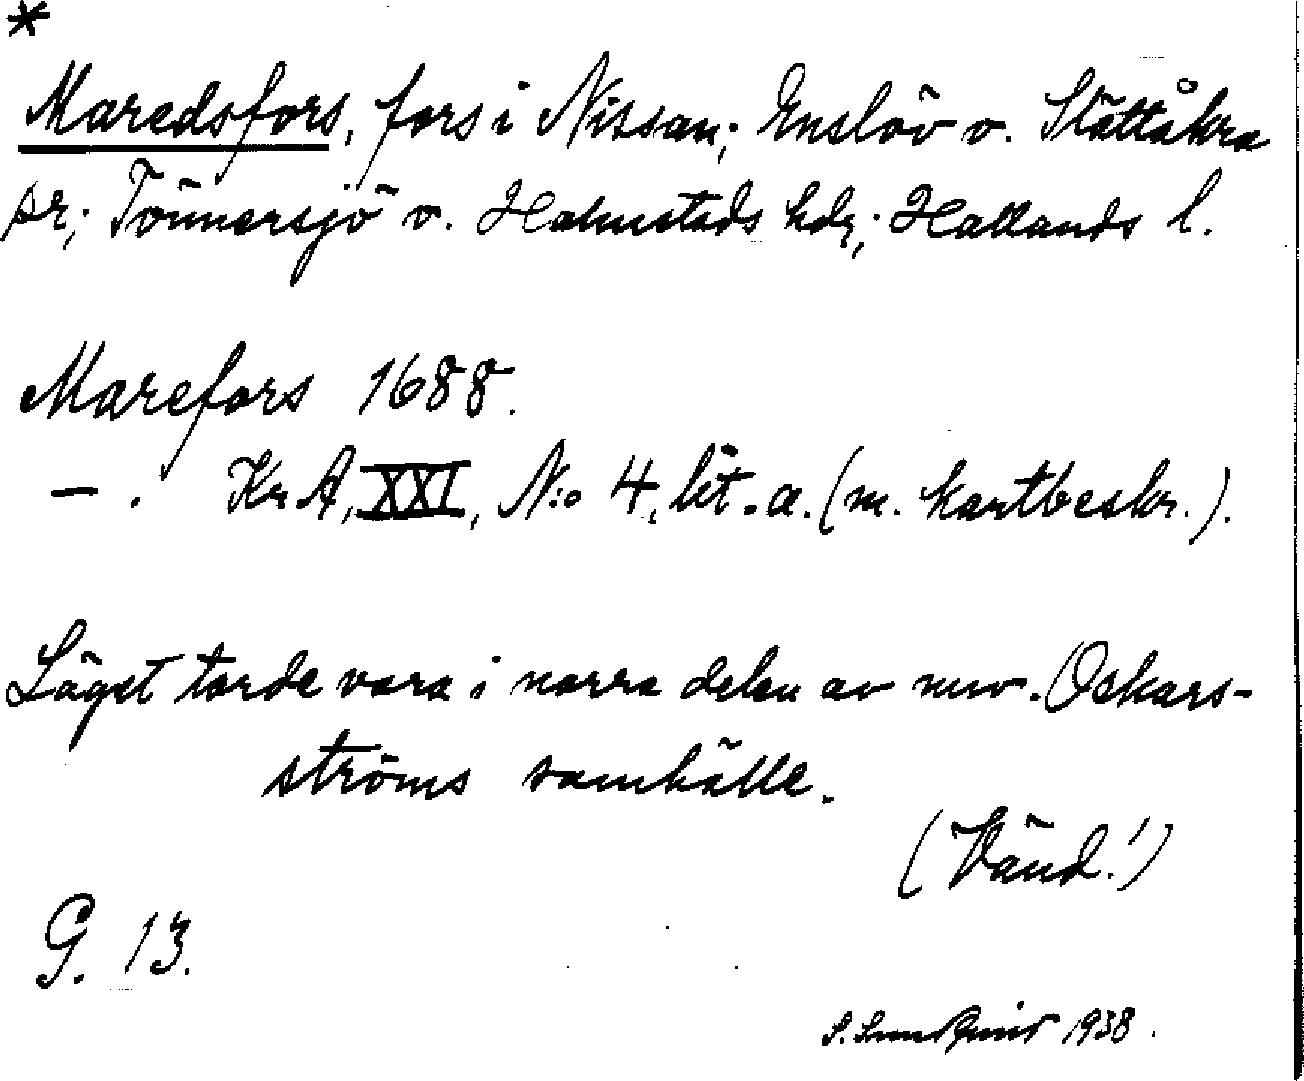 *
Maredsfors, fors i Nissan; Enslöv o. Slättåkra
sr; Tönnersjö o. Halmstads hdr; Hallands l.
Marefors 1688.
— . Kr A, XXI, N:o 4, lit. a. (m. kartbeskr.).
Läget torde vara i norra delen av nuv. Oskars-
ströms samhälle.
(Vänd!)
G. 13.
S. 1938.